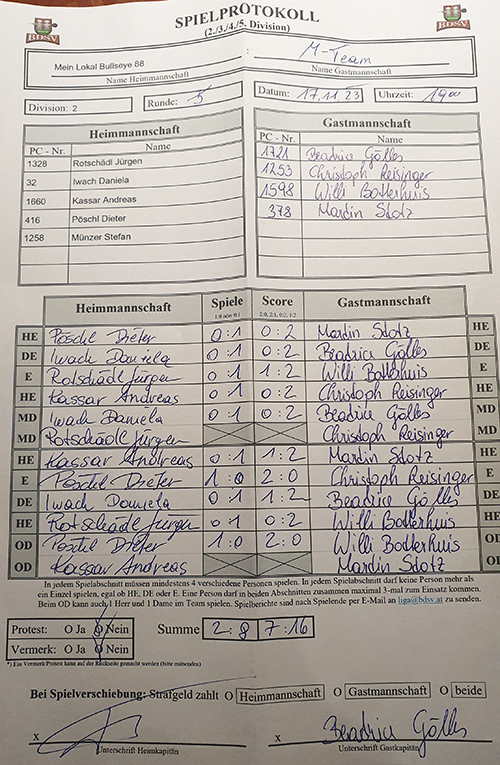 SPIELPROTOKOLL
(2./3./4./5. Division)
BDSV
BDSV
Mein Lokal Bullseye 88 : M-Team
Name Heimmannschaft Name Gastmannschaft
Division: 2 Runde: 5 Datum: 17.11.23 Uhrzeit: 19 00
Heimmannschaft
PC - Nr. Name
1328 Rotschädl Jürgen
32 Iwach Daniela
1660 Kassar Andreas
416 Pöschl Dieter
1258 Münzer Stefan
Gastmannschaft
PC - Nr. Name
1721 Beadrice Gölles
1253 Christoph Reisinger
1598 Willi Botterhuis
378 Martin Stotz
Heimmannschaft Spiele Score Gastmannschaft
1:0 oder 0:1 2:0, 2:1, 0:2, 1:2
HE Pöschl Dieter 0:1 0:2 Martin Stotz HE
DE Iwach Daniela 0:1 0:2 Beadrice Gölles DE
E Rotschädl Jürgen 0:1 1:2 Willi Botterhuis E
HE Kassar Andreas 0:1 0:2 Christoph Reisinger HE
MD Iwach Daniela 0:1 0:2 Beadrice Gölles MD
MD Rotschädl Jürgen Christoph Reisinger MD
HE Kassar Andreas 0:1 1:2 Martin Stotz HE
E Pöschl Dieter 1:0 2:0 Christoph Reisinger E
DE Iwach Daniela 0:1 1:2 Beadrice Gölles DE
HE Rotschädl Jürgen 0:1 0:2 Willi Botterhuis HE
OD Pöschl Dieter 1:0 2:0 Willi Botterhuis OD
OD Kassar Andreas Martin Stotz OD
In jedem Spielabschnitt müssen mindestens 4 verschiedene Personen spielen. In jedem Spielabschnitt darf keine Person mehr als
ein Einzel spielen, egal ob HE, DE oder E. Eine Person darf in beiden Abschnitten zusammen maximal 3-mal zum Einsatz kommen.
Beim OD kann auch 1 Herr und 1 Dame im Team spielen. Spielberichte sind nach Spielende per E-Mail an liga@bdsv.at zu senden.
Protest: O Ja O Nein Summe 2:8 7:16
Vermerk*: O Ja O Nein
*) Ein Vermerk/Protest kann auf der Rückseite gemacht werden (bitte ankreuzen)
Bei Spielverschiebung: Strafgeld zahlt O Heimmannschaft O Gastmannschaft O beide
x x Beadrice Gölles
Unterschrift Heimkapitän Unterschrift Gastkapitän